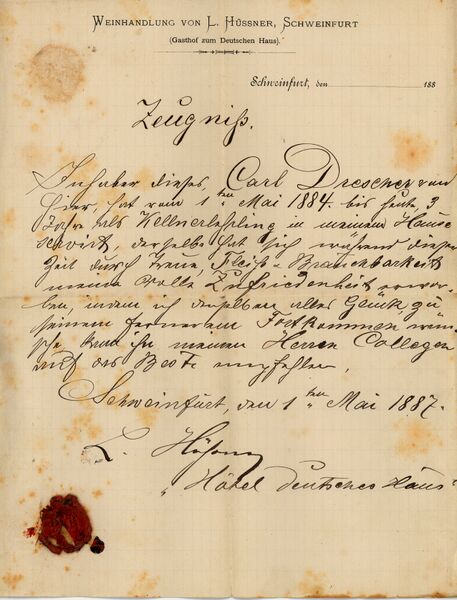 WEINHANDLUNG VON L. HÜSSNER, SCHWEINFURT
(Gasthof zum Deutschen Haus).
Schweinfurt, den 188
Zeugniß.
Inhaber dieses, Carl Drescher von
hier, hat vom 1ten Mai 1884. bis heute 3
Jahre als Kellnerlehrling in meinem Hause
servirt, derselbe hat sich während dieser
Zeit durch Treue, Fleiß u. Brauchbarkeit
meine volle Zufriedenheit erwor-
ben, indem ich demselben alles Glück zu
seinem ferneren Fortkommen wün-
sche, kann ihn meinen Herren Collegen
auf das Beste empfehlen.
Schweinfurt, den 1ten Mai 1887.
L. Hüssner
"Hôtel deutsches Haus"